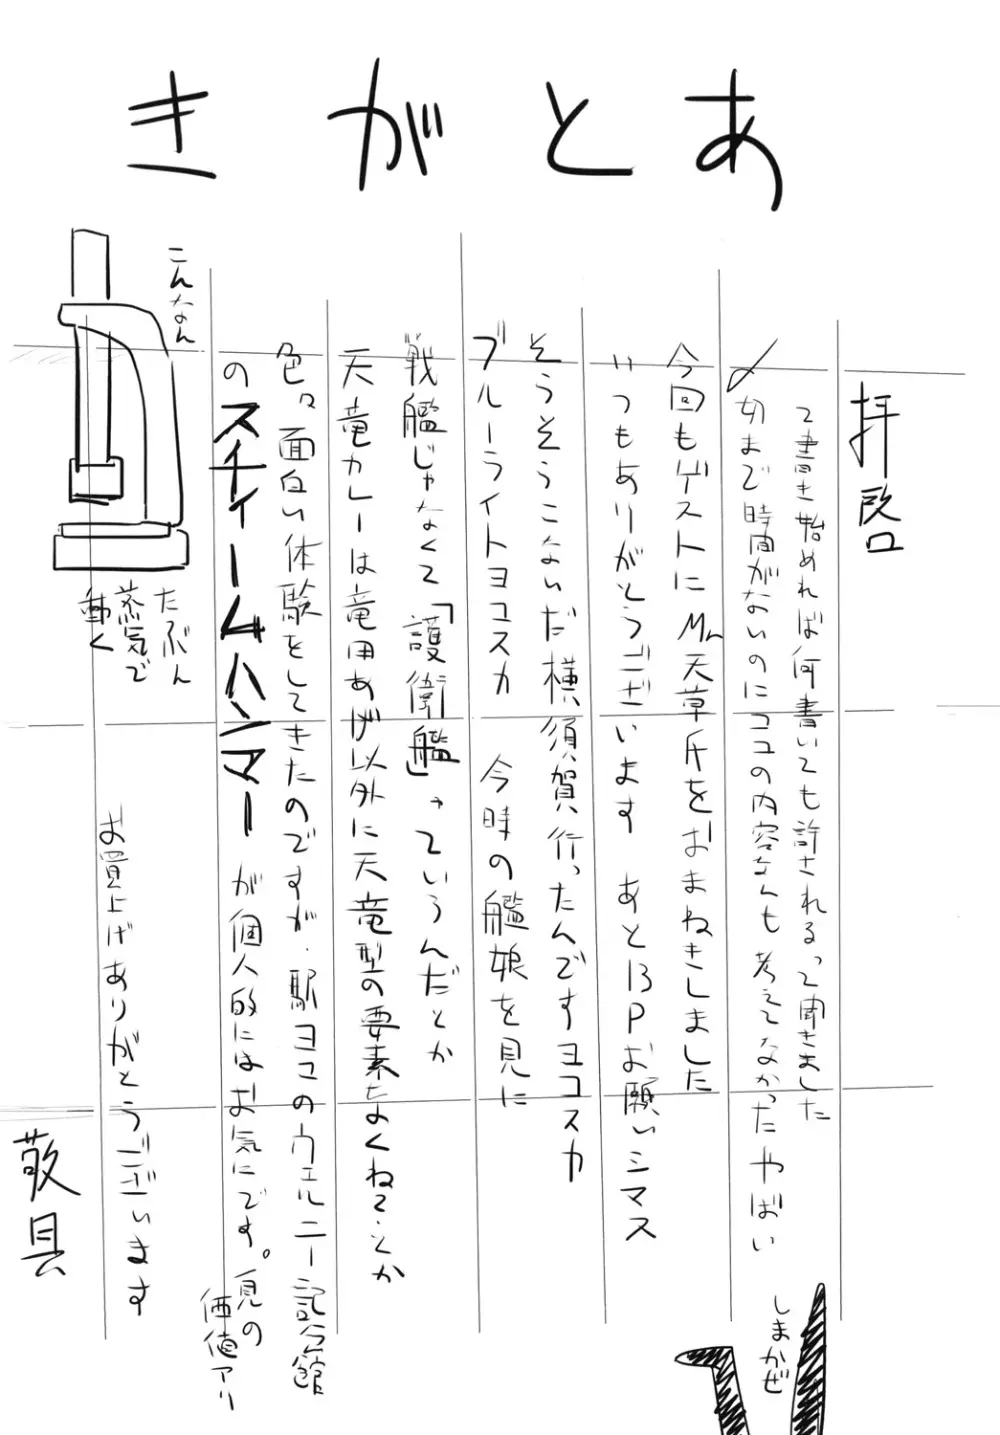 あとがき
拝啓
って書き始めれば何書いても許されるって聞きました
〆切まで時間がないのにココの内容なんも考えてなかったやばい
今回もゲストにMr.天草氏をおまねきしました
いつもありがとうございます あと13Pお願いシマス
そうそうこないだ横須賀行ったんですヨコスカ
ブルーライトヨコスカ 今時の艦娘を見に
戦艦じゃなくて「護衛艦」っていうんだとか
天竜カレーは竜田あげ以外に天竜型の要素なくね?とか
色々面白い体験をしてきたのですが、駅ヨコのヴェルニー記念館
のスチームハンマーが個人的にはお気にです。見の
価値アリ
こんなん
たぶん
蒸気で
動く
お買上げありがとうございます
敬具
しまかぜ